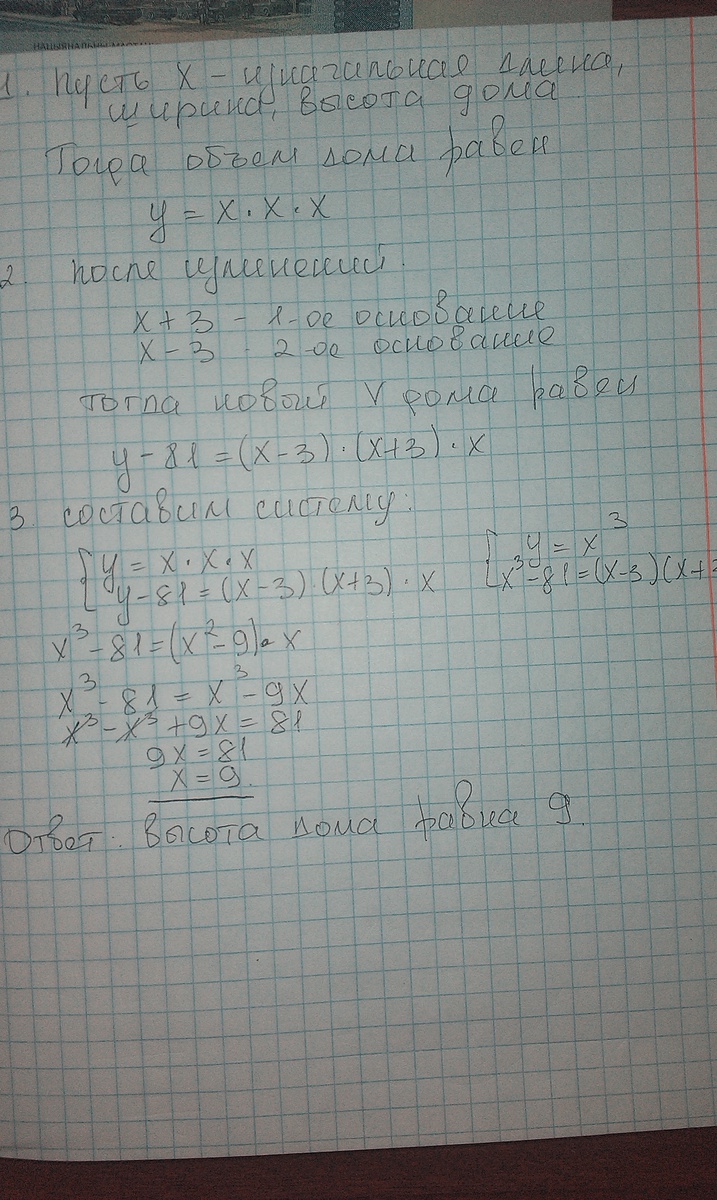 1. Пусть x - изначальная длинна,
ширина, высота дома
Тогда объем дома равен
y = x · x · x
2. после изменений.
x + 3 - 1-ое основание
x - 3 2-ое основание
тогда новый V дома равен
y - 81 = (x - 3) · (x+3) · x
3. составим систему:
{ y = x · x · x
y - 81 = (x - 3) · (x+3) · x
{ y = x³
x³ - 81 = (x-3)(x+3
x³ - 81 = (x² - 9) · x
x³ - 81 = x³ - 9x
x³ - x³ + 9x = 81
9x = 81
x = 9.
Ответ: высота дома равна 9.